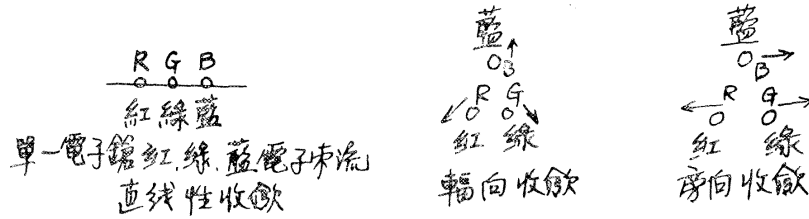 R G B
紅綠藍
單一電子鎗紅.綠.藍電子束流
直线性收歛
藍
B
R G
紅 綠
輻向收歛
藍
B
R G
紅 綠
旁向收歛